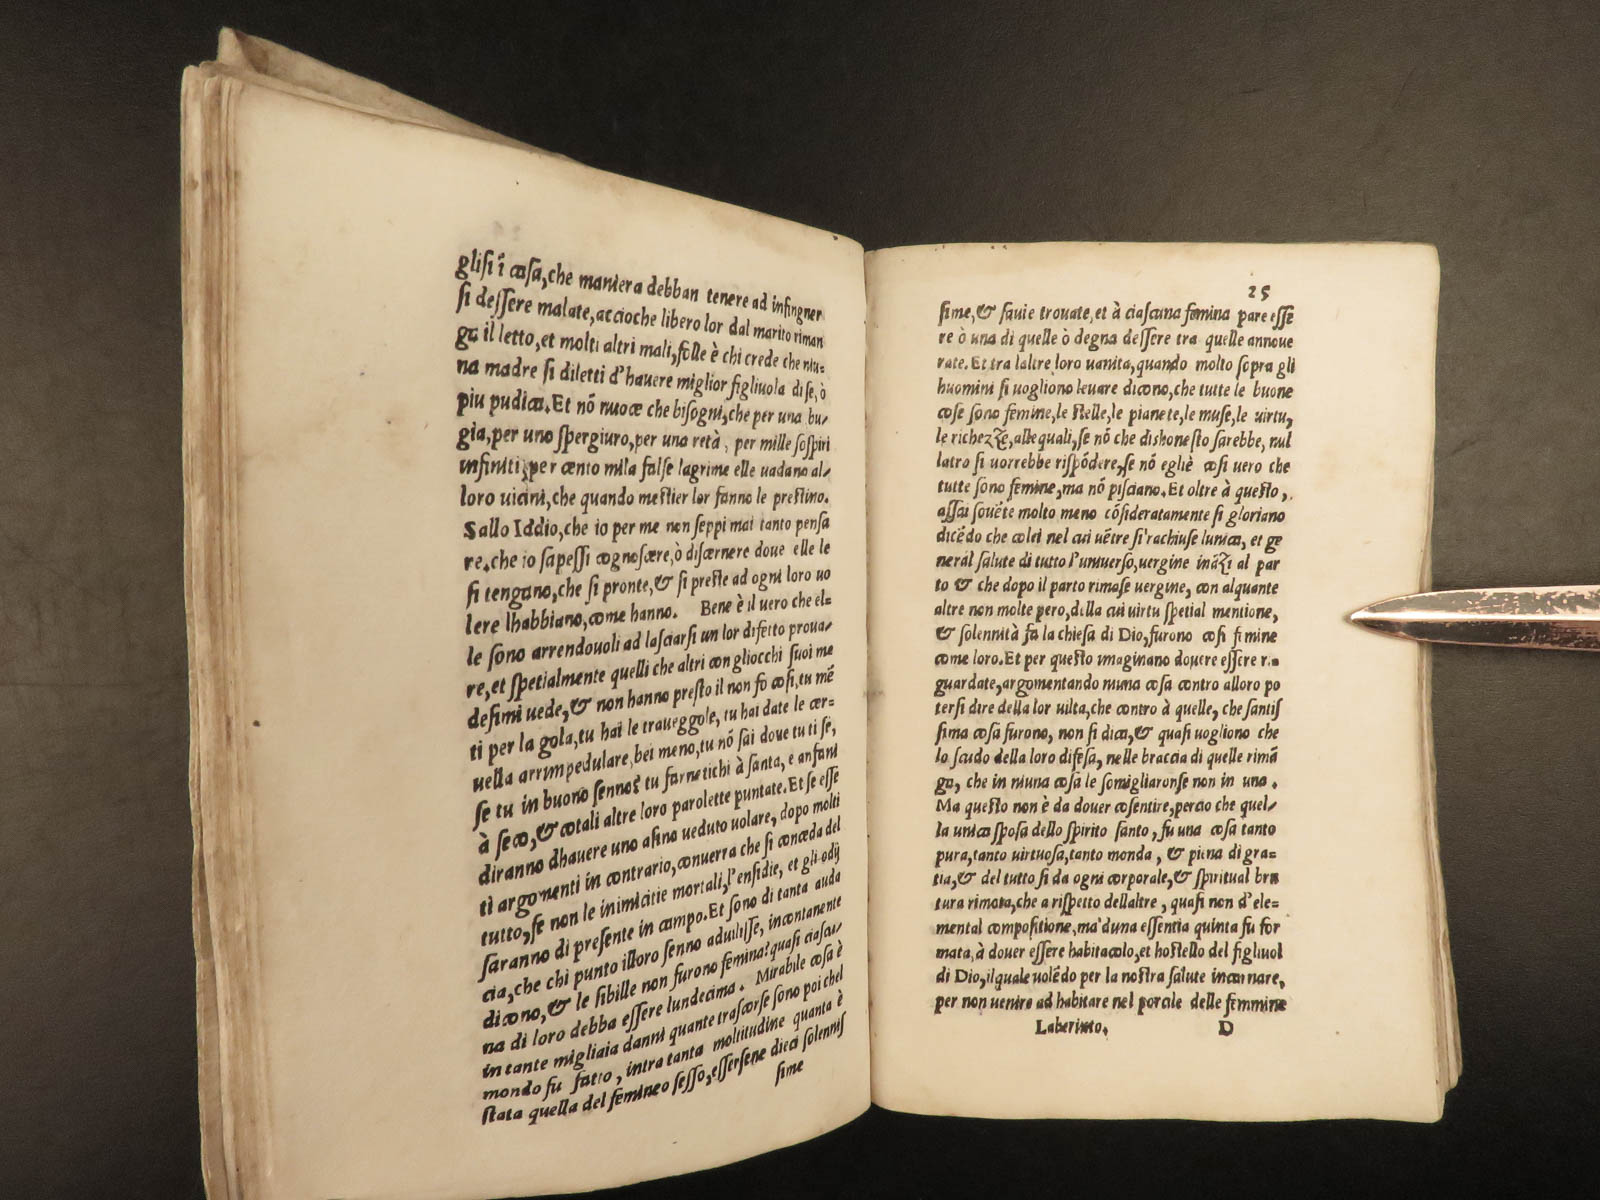 glisi ĩ cosa, che maniera debban tenere ad infingner
si dessere malate, accioche libero lor dal marito riman
ga il letto, et molti altri mali, folle è chi crede che niu=
na madre si diletti d'hauere miglior figliuola di se, ò
piu pudica. Et nõ nuoce che bisogni, che per una bu/
gia, per uno spergiuro, per una retà, per mille sospiri
infiniti, per cento mila false lagrime elle uadano al/
loro uicini, che quando mestier lor fanno le prestino.
Sallo Iddio, che io per me non seppi mai tanto pensa
re, che io sapessi cognoscere, ò discernere doue elle le
si tengano, che si pronte, & si preste ad ogni loro uo
lere lhabbiano, come hanno. Bene è il uero che el=
le sono arrendouoli ad lasciarsi un lor difetto proua/
re, et spetialmente quelli che altri con gliocchi suoi me
desimi uede, & non hanno presto il non fo cosi, tu mẽ
ti per la gola, tu hai le traueggole, tu hai date le cer=
uella arrimpedulare, bei meno, tu nõ sai doue tu ti se,
se tu in buono senno? tu farnetichi à santa, e anfani
à seco, & cotali altre loro parolette puntate. Et se esse
diranno dhauere uno asino ueduto uolare, dopo molti
ti argomenti in contrario, conuerra che si conceda del
tutto, se non le inimicitie mortali, l'ensidie, et gli odij
saranno di presente in campo. Et sono di tanta auda
cia, che chi punto illoro senno aduilisse, incontanente
dicono, & le sibille non furono femina? quasi ciascu/
na di loro debba essere lundecima. Mirabile cosa è
in tante migliaia danni quante trascorse sono poi chel
mondo fu fatto, intra tanta moltitudine quanta è
stata quella del femineo sesso, essersene dieci solennis
sime
25
sime, & sauie trouate, et à ciascuna femina pare esse
re ò una di quelle ò degna dessere tra quelle annoue
rate. Et tra laltre loro uanita, quando molto sopra gli
huomini si uogliono leuare dicono, che tutte le buone
cose sono femine, le stelle, le pianete, le muse, le uirtu,
le richezze, alle quali, se nõ che dishonesto sarebbe, nul
latro si uorrebbe rispõdere, se nõ egliè cosi uero che
tutte sono femine, ma nõ pisciano. Et oltre à questo,
assai souẽte molto meno cõsideratamente si gloriano
dicẽdo che colei nel cui uẽtre si rachiuse lunica, et ge
neral salute di tutto l'uniuerso, uergine inãzi al par
to & che dopo il parto rimase uergine, con alquante
altre non molte pero, della cui uirtu spetial mentione,
& solennità fa la chiesa di Dio, furono cosi femine
come loro. Et per questo imaginano douere essere ri=
guardate, argomentando niuna cosa contro alloro po
tersi dire della lor uilta, che contro à quelle, che santis
sima cosa furono, non si dica, & quasi uogliono che
lo scudo della loro difesa, nelle braccia di quelle rimã
ga, che in niuna cosa le somigliaronse non in una.
Ma questo non è da douer cõsentire, percio che quel/
la unica sposa dello spirito santo, fu una cosa tanto
pura, tanto uirtuosa, tanto monda, & piena di gra=
tia, & del tutto si da ogni corporale, & spiritual bru
tura rimota, che a rispetto dellaltre, quasi non d'ele=
mental compositione, ma duna essentia quinta fu for
mata, à douer essere habitacolo, et hostello del figliuol
di Dio, ilquale uolẽdo per la nostra salute incarnare,
per non uenire ad habitare nel porcile delle femmine
Laberinto. D